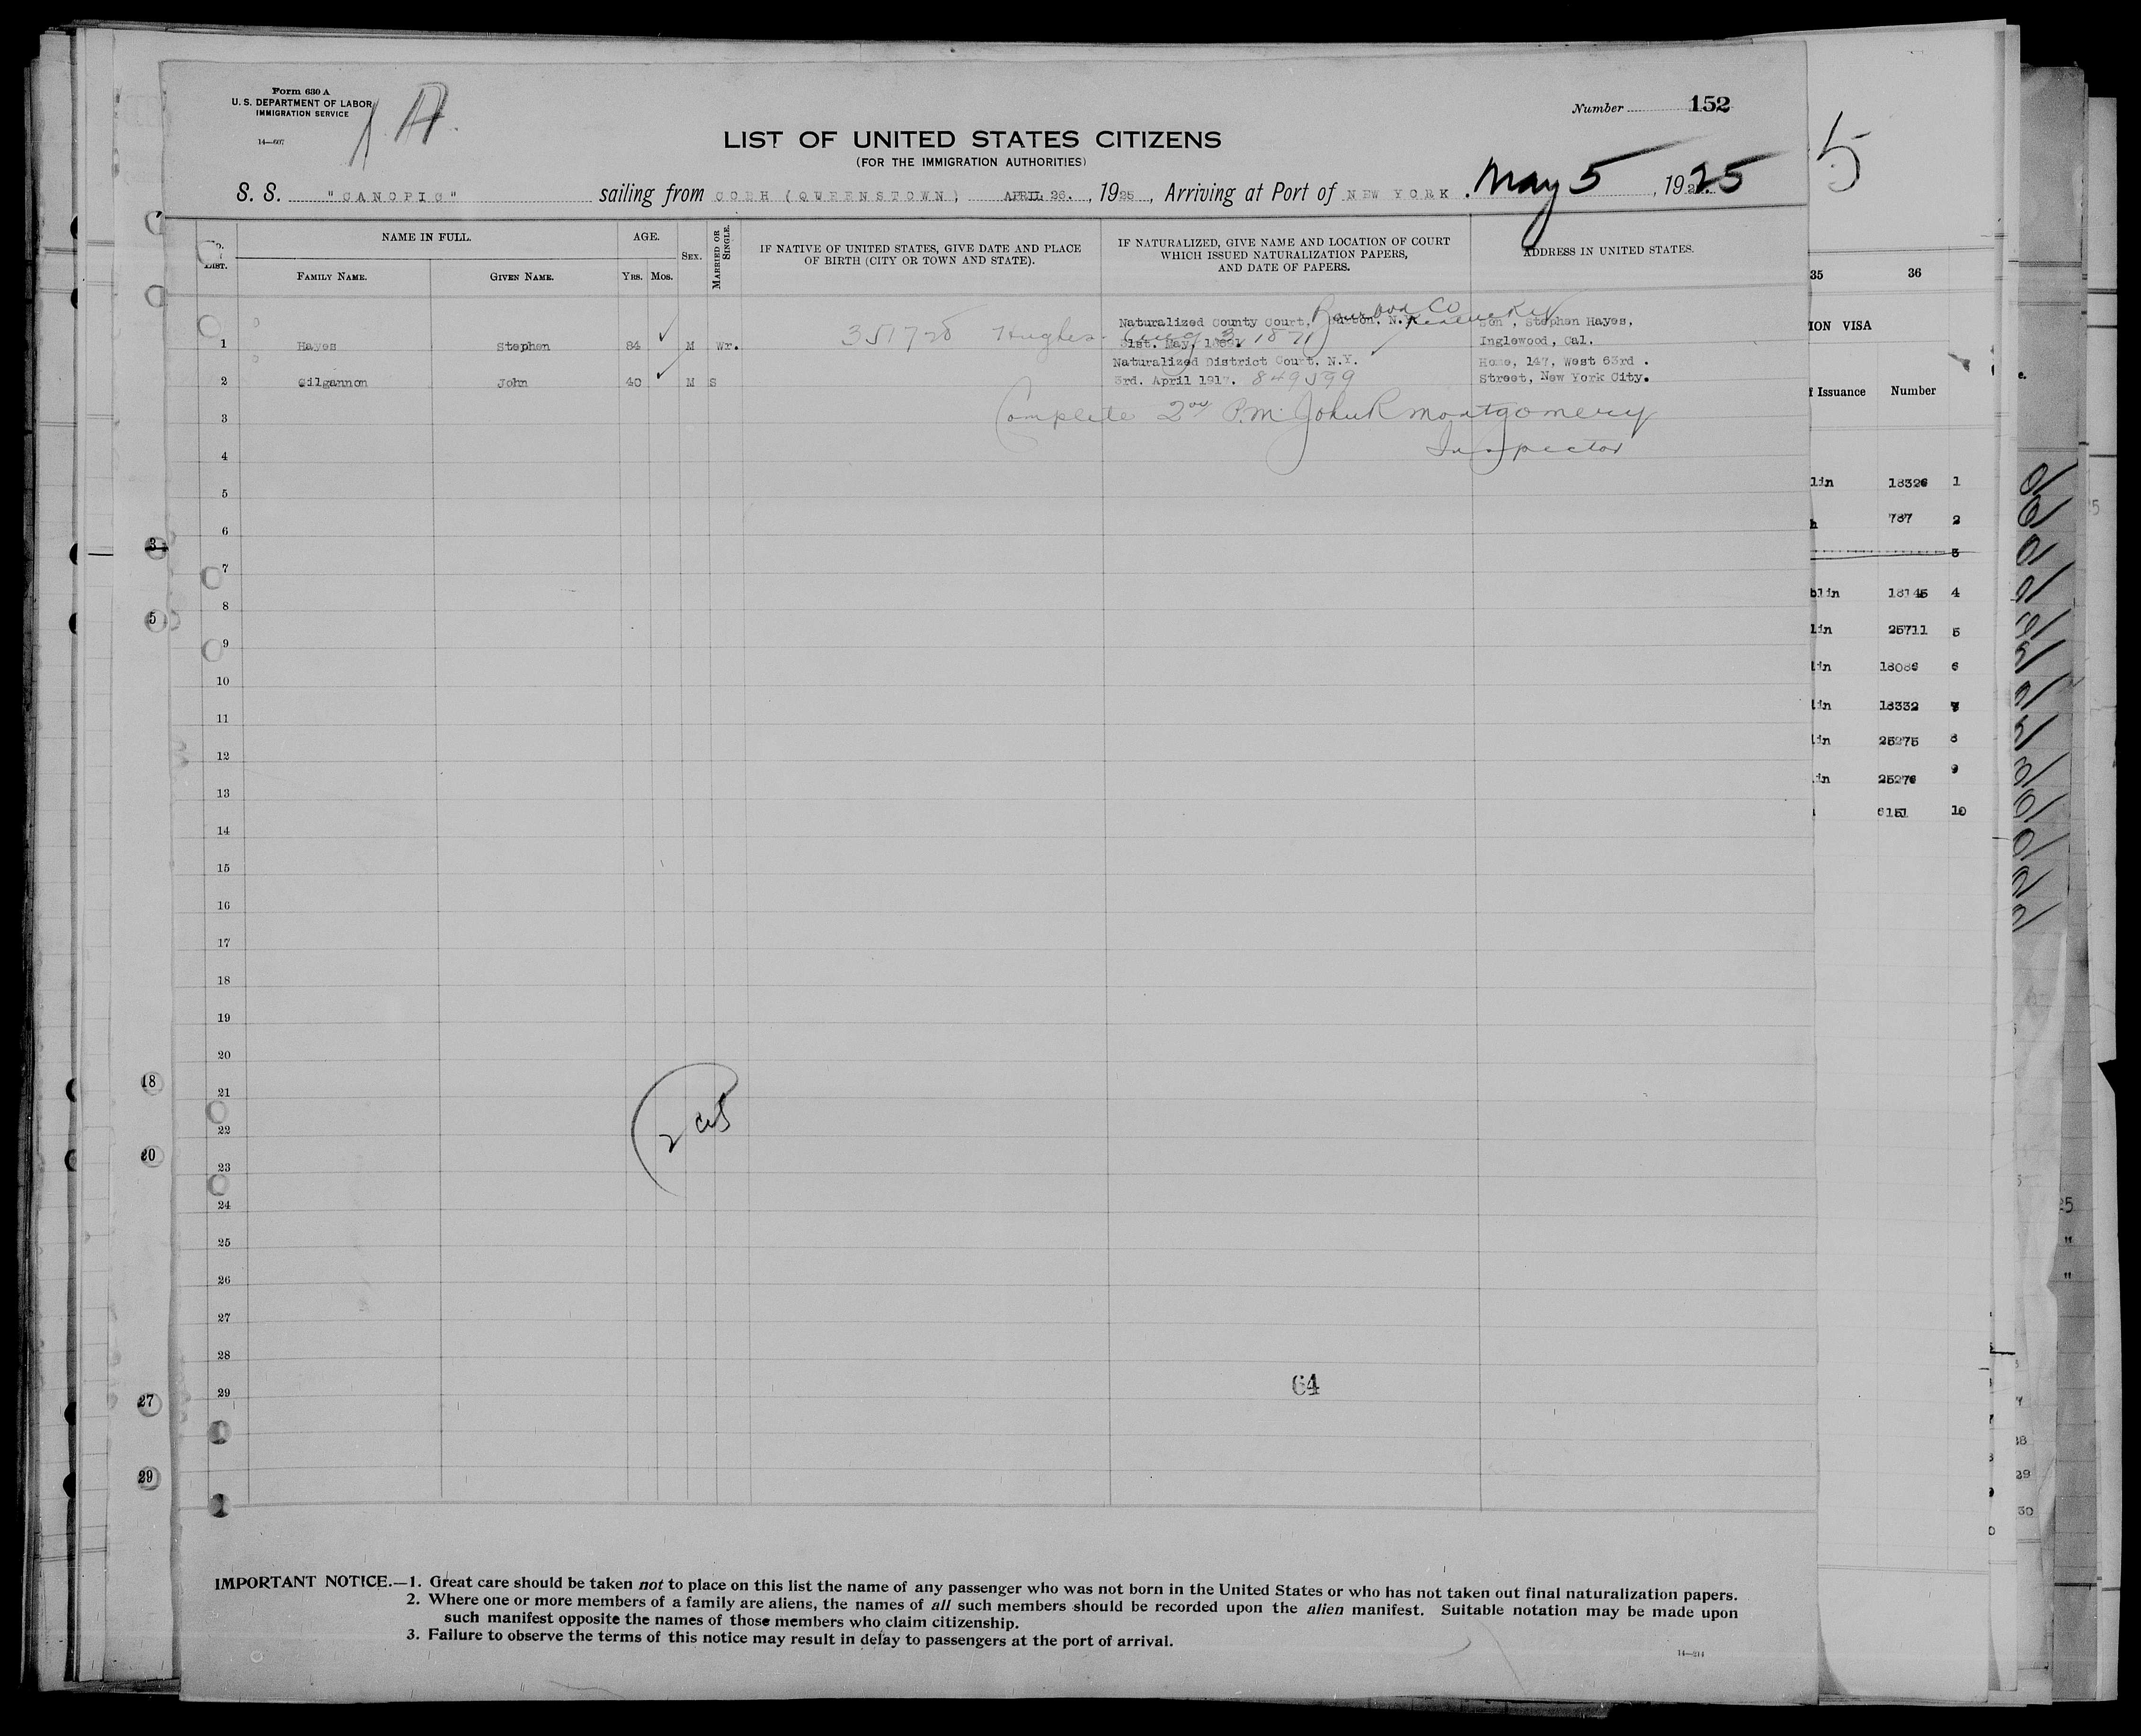 Form 630 A
U. S. DEPARTMENT OF LABOR
IMMIGRATION SERVICE
14—607
1 A
Number 152
LIST OF UNITED STATES CITIZENS
(FOR THE IMMIGRATION AUTHORITIES)
S. S. "CANOPIC" sailing from COBH (QUEENSTOWN) APRIL 26. , 1925 , Arriving at Port of NEW YORK . May 5 , 1925
5
NAME IN FULL.
AGE.
SEX.
MARRIED OR SINGLE.
IF NATIVE OF UNITED STATES, GIVE DATE AND PLACE OF BIRTH (CITY OR TOWN AND STATE).
IF NATURALIZED, GIVE NAME AND LOCATION OF COURT WHICH ISSUED NATURALIZATION PAPERS, AND DATE OF PAPERS.
ADDRESS IN UNITED STATES.
LIST.
FAMILY NAME.
GIVEN NAME.
YRS.
MOS.
Bourbon Co Kentucky
Naturalized County Court, N.Y. Son , Stephen Hayes,
1 Hayes Stephen 84 M Wr. 351728 Hughes. (Aug 3 1871) 31st. May, Inglewood, Cal.
Naturalized District Court. N.Y. Home, 147, West 63rd .
2 Gilgannon John 40 M S 3rd. April 1917. 849599 Street, New York City.
3 Complete 2 P.M. John R Montgomery
4 Inspector
5
6
7
8
9
10
11
12
13
14
15
16
17
18
19
20
21
22
23
24
25
26
27
28
29
64
IMPORTANT NOTICE.—1. Great care should be taken not to place on this list the name of any passenger who was not born in the United States or who has not taken out final naturalization papers.
2. Where one or more members of a family are aliens, the names of all such members should be recorded upon the alien manifest. Suitable notation may be made upon
such manifest opposite the names of those members who claim citizenship.
3. Failure to observe the terms of this notice may result in delay to passengers at the port of arrival.
14—214
35 36
ION VISA
f Issuance Number
lin 18326 1
h 787 2
3
blin 18145 4
lin 25711 5
lin 18086 6
lin 18332 7
lin 25275 8
in 25276 9
6151 10
3
5
18
20
27
29